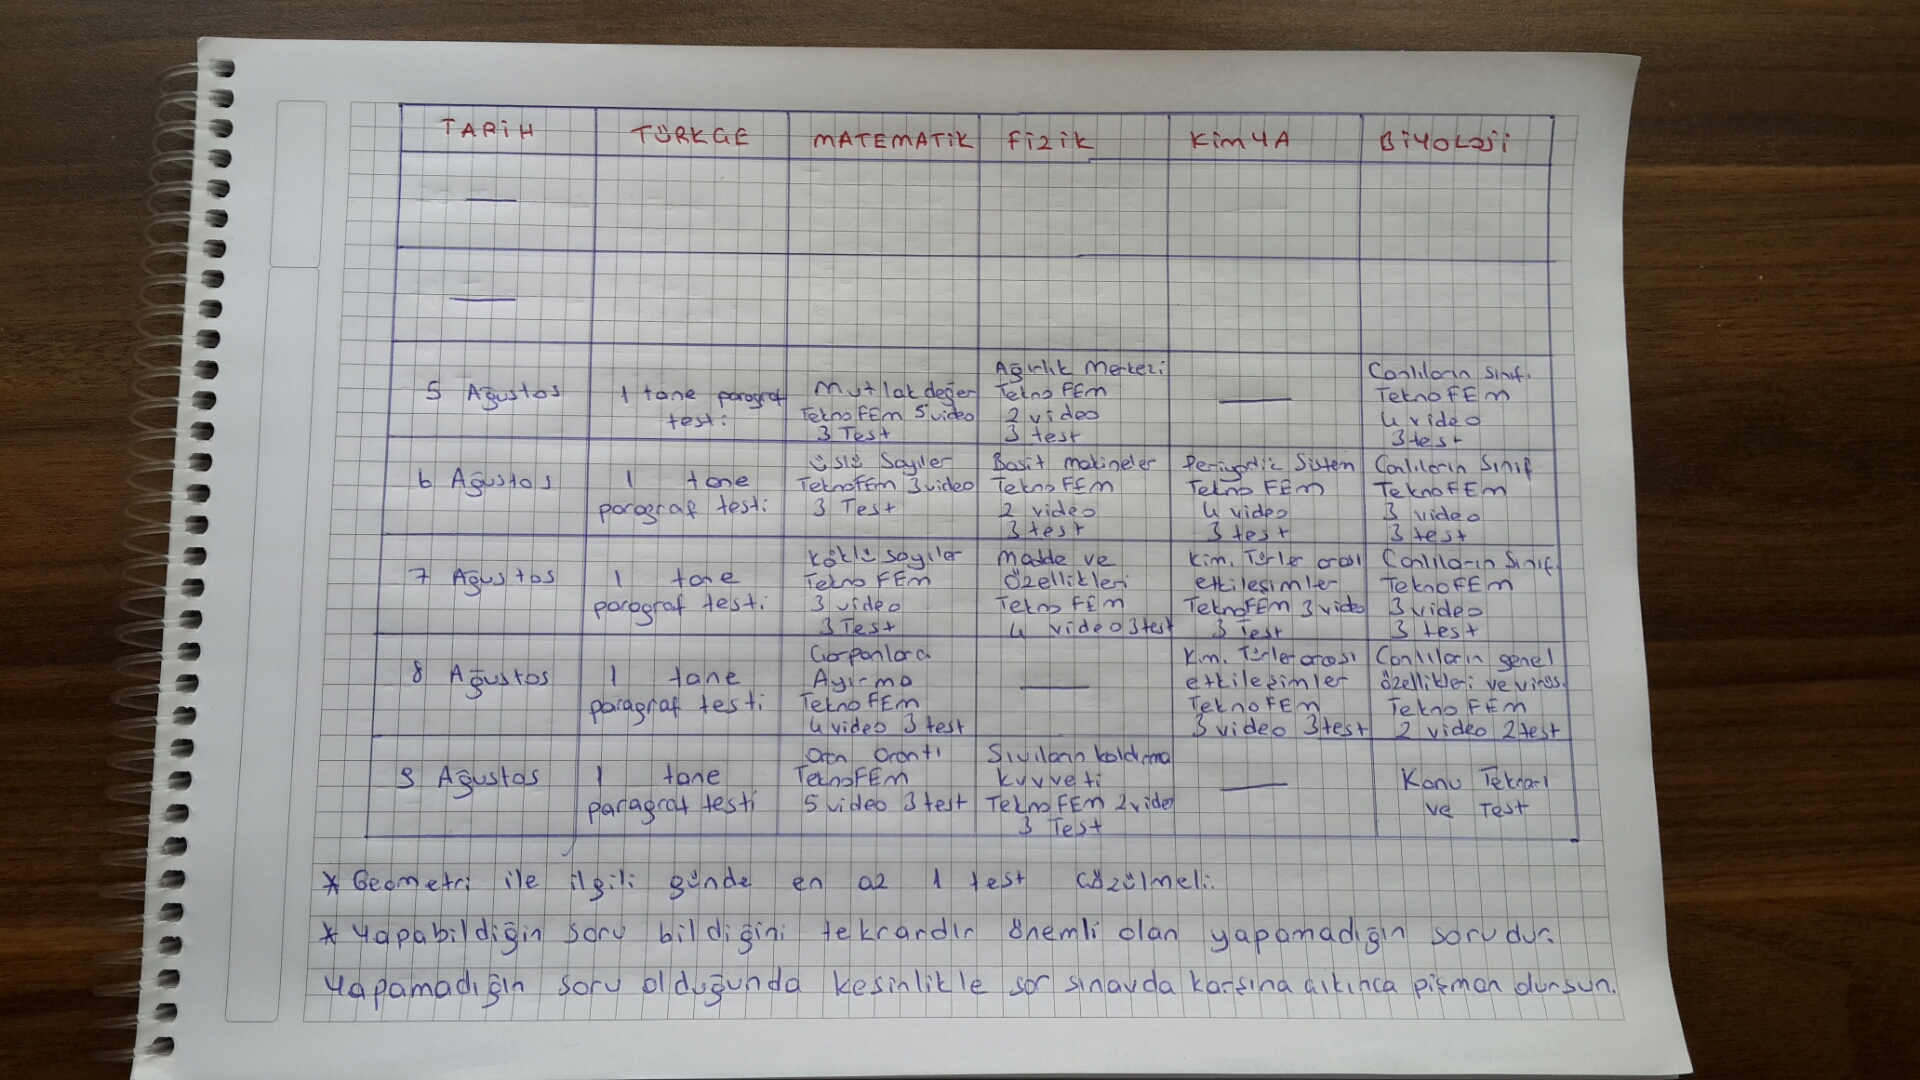 TARİH TÜRKÇE MATEMATİK FİZİK KİMYA BİYOLOJİ
5 Ağustos
1 tane paragraf
testi
Mutlak değer
TeknoFEM 5 video
3 Test
Ağırlık Merkezi
Tekno FEM
2 video
3 test
Canlıların sınıf.
TeknoFEM
4 video
3 test
6 Ağustos
1 tane
paragraf testi
Üslü Sayılar
TeknoFEM 3 video
3 Test
Basit makineler
Tekno FEM
2 video
3 test
Periyodik Sistem
Tekno FEM
4 video
3 test
Canlıların Sınıf.
TeknoFEM
3 video
3 test
7 Ağustos
1 tane
paragraf testi
Köklü sayılar
Tekno FEM
3 video
3 Test
Madde ve
Özellikleri
Tekno FEM
4 video 3 test
Kim. Türler arası
etkileşimler
TeknoFEM 3 video
3 Test
Canlıların Sınıf.
TeknoFEM
3 video
3 test
8 Ağustos
1 tane
paragraf testi
Çarpanlara
Ayırma
TeknoFEM
4 video 3 test
Kim. Türler arası
etkileşimler
TeknoFEM
3 video 3 test
Canlıların genel
özellikleri ve virüs.
Tekno FEM
2 video 2 test
9 Ağustos
1 tane
paragraf testi
Oran Orantı
TeknoFEM
5 video 3 test
Sıvıların kaldırma
kuvveti
Tekno FEM 2 video
3 Test
Konu Tekrarı
ve Test
* Geometri ile ilgili günde en az 1 test çözülmeli.
* Yapabildiğin soru bildiğini tekrardır önemli olan yapamadığın sorudur.
Yapamadığın soru olduğunda kesinlikle sor sınavda karşına çıkınca pişman olursun.